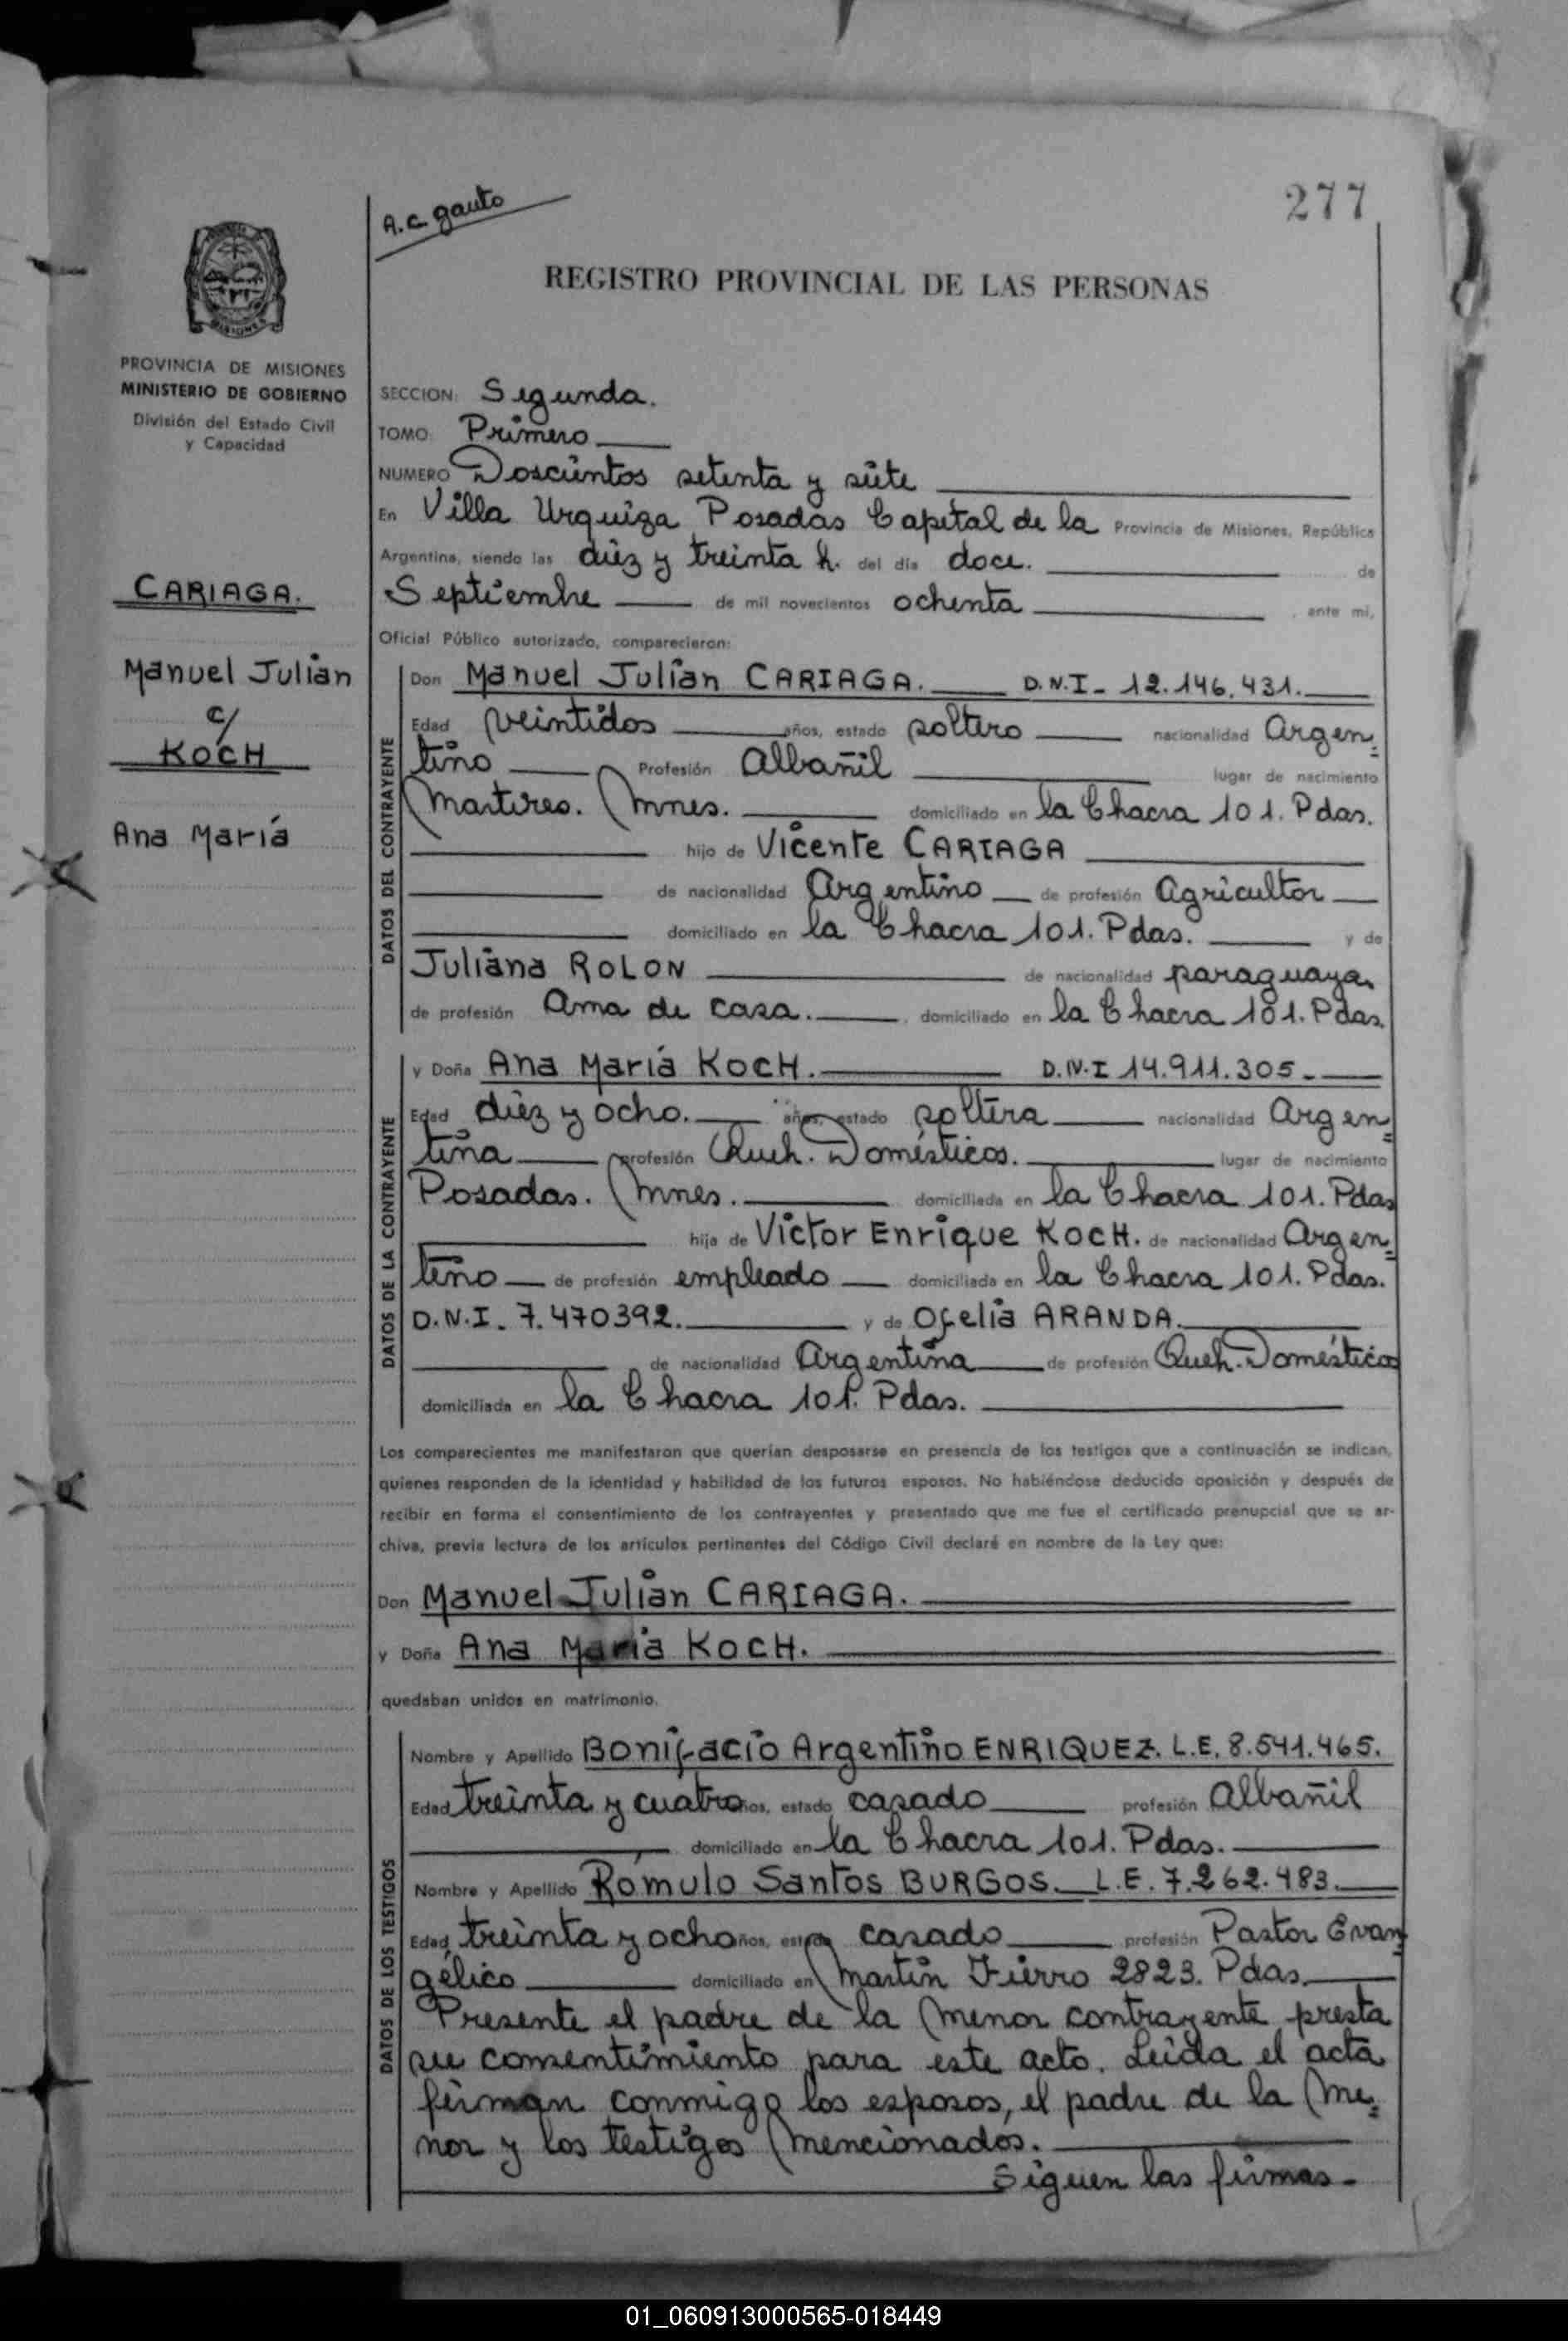 277
A.C. gauto
REGISTRO PROVINCIAL DE LAS PERSONAS
MISIONES
PROVINCIA DE MISIONES
MINISTERIO DE GOBIERNO
División del Estado Civil
y Capacidad
CARIAGA.
Manuel Julián
c/
KOCH
Ana María
SECCION: Segunda.
TOMO: Primero
NUMERO Doscientos setenta y siete
En Villa Urquiza Posadas Capital de la Provincia de Misiones, República
Argentina, siendo las diez y treinta h. del día doce. de
Septiembre de mil novecientos ochenta , ante mi,
Oficial Público autorizado, comparecieron:
DATOS DEL CONTRAYENTE
Don Manuel Julián CARIAGA. D.N.I- 12.146.431.
Edad veintidos años, estado soltero nacionalidad Argen=
tino Profesión Albañil lugar de nacimiento
Martires. Mnes. domiciliado en la Chacra 101. Pdas.
hijo de Vicente CARIAGA
de nacionalidad Argentino de profesión Agricultor
domiciliado en la Chacra 101. Pdas. y de
Juliana ROLON de nacionalidad paraguaya,
de profesión Ama de casa. domiciliado en la Chacra 101. Pdas.
DATOS DE LA CONTRAYENTE
y Doña Ana María KOCH. D.N.I 14.911.305-
Edad diez y ocho. años, estado soltera nacionalidad Argen=
tina profesión Queh. Domésticos. lugar de nacimiento
Posadas. Mnes. domiciliada en la Chacra 101. Pdas
hija de Victor Enrique KOCH. de nacionalidad Argen=
tino de profesión empleado domiciliada en la Chacra 101. Pdas.
D.N.I. 7.470392. y de Ofelia ARANDA.
de nacionalidad Argentina de profesión Queh. Domésticos
domiciliada en la Chacra 101. Pdas.
Los comparecientes me manifestaron que querían desposarse en presencia de los testigos que a continuación se indican,
quienes responden de la identidad y habilidad de los futuros esposos. No habiéndose deducido oposición y después de
recibir en forma el consentimiento de los contrayentes y presentado que me fue el certificado prenupcial que se ar-
chiva, previa lectura de los artículos pertinentes del Código Civil declaré en nombre de la Ley que:
Don Manuel Julián CARIAGA.
y Doña Ana María KOCH.
quedaban unidos en matrimonio.
DATOS DE LOS TESTIGOS
Nombre y Apellido Bonifacio Argentino ENRIQUEZ. L.E. 8.541.465.
Edad treinta y cuatro años, estado casado profesión Albañil
domiciliado en la Chacra 101. Pdas.
Nombre y Apellido Rómulo Santos BURGOS. L.E. 7.262.483.
Edad treinta y ocho años, estado casado profesión Pastor Evan=
gélico domiciliado en Martin Fierro 2823. Pdas.
Presente el padre de la menor contrayente presta
su consentimiento para este acto. Leida el acta
firman conmigo los esposos, el padre de la me=
nor y los testigos mencionados.
Siguen las firmas-
01_060913000565-018449